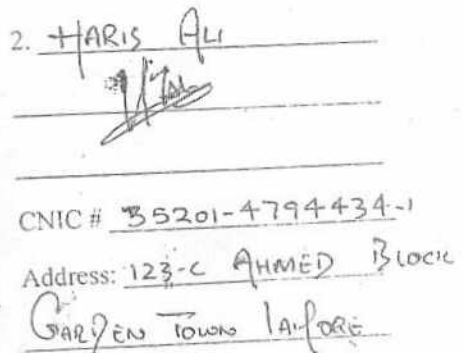 2. HARIS ALI
CNIC # 35201-4794434-1
Address: 123-C AHMED BLOCK
GARDEN TOWN LAHORE